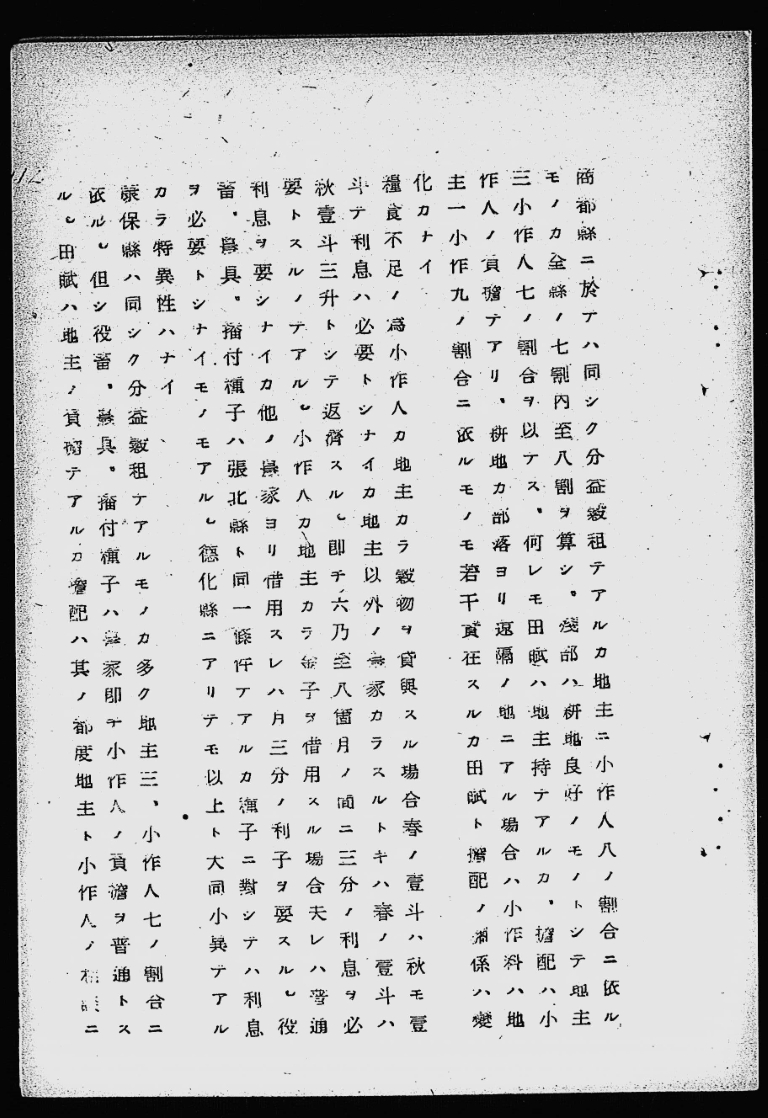 商都縣ニ於テハ同シク分益穀租テアルカ地主ニ小作人八ノ割合ニ依ル
モノカ全縣ノ七割內至八割ヲ算シ、殘部ハ耕地良好ノモノトシテ地主
三小作人七ノ割合ヲ以テス、何レモ田賦ハ地主持テアルカ、擔配ハ小
作人ノ負擔テアリ、耕地カ部落ヨリ遠隔ノ地ニアル場合ハ小作料ハ地
主一小作九ノ割合ニ依ルモノモ若干實在スルカ田賦ト擔配ノ關係ハ變
化カナイ
糧食不足ノ爲小作人カ地主カラ穀物ヲ貸與スル場合春ノ壹斗ハ秋モ壹
斗テ利息ハ必要トシナイカ地主以外ノ農家カラスルトキハ春ノ壹斗ハ
秋壹斗三升トシテ返濟スル。卽チ六乃至八箇月ノ間ニ三分ノ利息ヲ必
要トスルノテアル。小作人カ地主カラ金子ヲ借用スル場合夫レハ普通
利息ヲ要シナイカ他ノ農家ヨリ借用スレハ月三分ノ利子ヲ要スル。役
畜、農具、播付種子ハ張北縣ト同一條件テアルカ種子ニ對シテハ利息
ヲ必要トシナイモノモアル。德化縣ニアリテモ以上ト大同小異テアル
カラ特異性ハナイ
康保縣ハ同シク分益穀租テアルモノカ多ク地主三、小作人七ノ割合ニ
依ル。但シ役畜、農具、播付種子ハ農家卽チ小作人ノ負擔ヲ普通トス
ル。田賦ハ地主ノ負擔テアルカ擔配ハ其ノ都度地主ト小作人ノ ニ